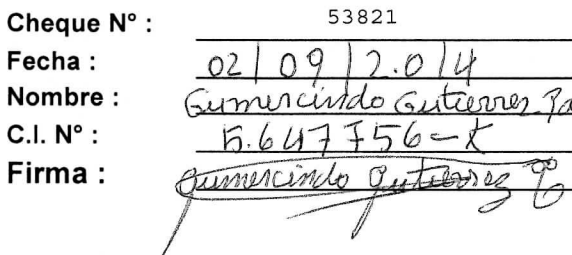 Cheque N° : 53821
Fecha : 02 | 09 | 2.014
Nombre : Gumercindo Gutierrez
C.I. N° : 5.647756-K
Firma : Gumercindo Gutierrez